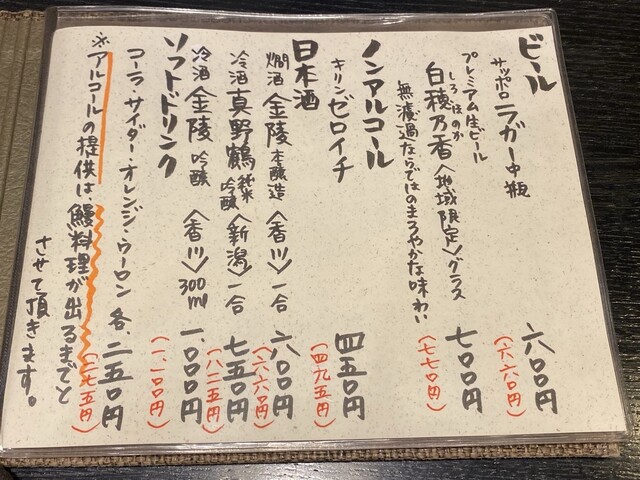 ビール
サッポロ ラガー中瓶 六〇〇円
(六六〇円)
プレミアム生ビール
しろほのか
白穂乃香〈地域限定〉グラス 七〇〇円
(七七〇円)
無濾過ならではのまろやかな味わい
ノンアルコール
キリン ゼロイチ 四五〇円
(四九五円)
日本酒
燗酒 金陵 本醸造 〈香川〉 一合 六〇〇円
(六六〇円)
冷酒 真野鶴 純米吟醸 〈新潟〉 一合 七五〇円
(八二五円)
冷酒 金陵 吟醸 〈香川〉 300ml 一、〇〇〇円
(一、一〇〇円)
ソフトドリンク
コーラ・サイダー・オレンジ・ウーロン 各、二五〇円
(二七五円)
※アルコールの提供は、鰻料理が出るまでと
させて頂きます。